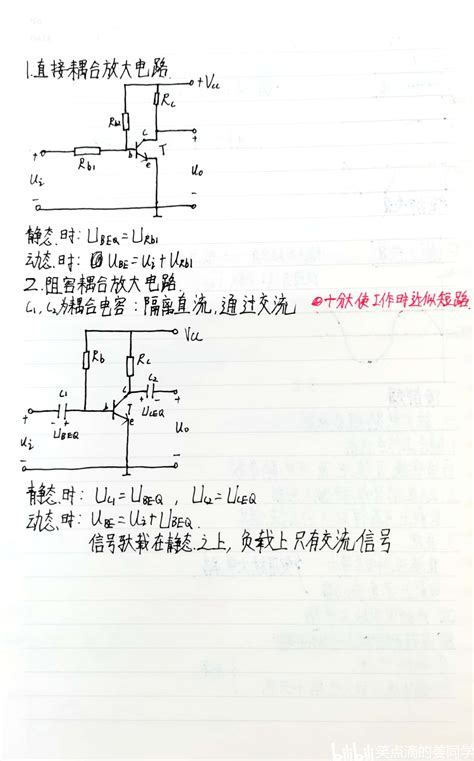 1.直接耦合放大电路.
+Vcc
Rc
Rb2
c
b
T
e
Rb1
+
+
Ui
Uo
-
-
静态.时: UBEQ=URb1
动态.时: UBE=Ui+URb1
2.阻容耦合放大电路.
C1,C2为耦合电容:隔离直流,通过交流
十分大使工作时近似短路.
Vcc
Rb
Rc
C2
c
C1
b
T
e
+
-
+
+
-
+
UBEQ
UCEQ
Ui
Uo
-
-
静态.时: UC1=UBEQ , UC2=UCEQ
动态.时: UBE=Ui+UBEQ.
信号驮载在静态.之上,负载上只有交流信号
bilibili 笑点滴的姜同学